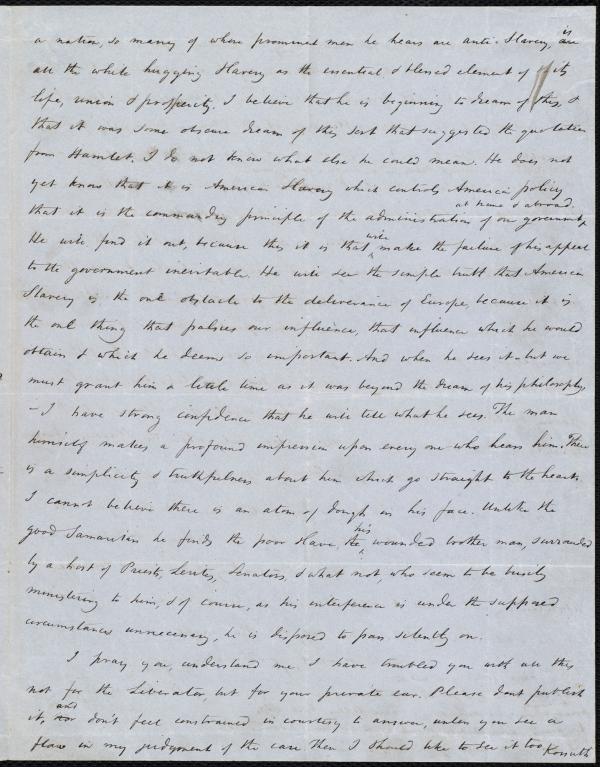 a nation, so many of whose prominent men he hears are anti-Slavery, is
all the while hugging Slavery as the essential & blessed element of its
life, union & prosperity. I believe that he is beginning to dream of this, &
that it was some obscure dream of this sort that suggested the quotation
from Hamlet. I do not know what else he could mean. He does not
yet know that it is American Slavery which controls American policy
at home & abroad.
that it is the commanding principle of the administration of our government.
He will find it out, because this it is that will make the failure of his appeal
to the government inevitable. He will see the simple truth that American
Slavery is the one obstacle to the deliverance of Europe, because it is
the one thing that palsies our influence, that influence which he would
obtain & which he deems so important. And when he sees it – but we
must grant him a little time as it was beyond the dream of his philosophy
– I have strong confidence that he will tell what he sees. The man
himself makes a profound impression upon every one who hears him. There
is a simplicity & truthfulness about him which go straight to the heart.
I cannot believe there is an atom of dough in his face. Unlike the
good Samaritan he finds the poor slave, his wounded brother man, surrounded
by a host of Priests, Levites, Senators, & what not, who seem to be busily
ministering to him, & of course, as his interference is under the supposed
circumstances unnecessary, he is disposed to pass silently on.
I pray you, understand me. I have troubled you with all this
not for the Liberator, but for your private ear. Please dont publish
it, and don't feel constrained in courtesy to answer, unless you see a
flaw in my judgment of the case then I should like to see it too Kossuth